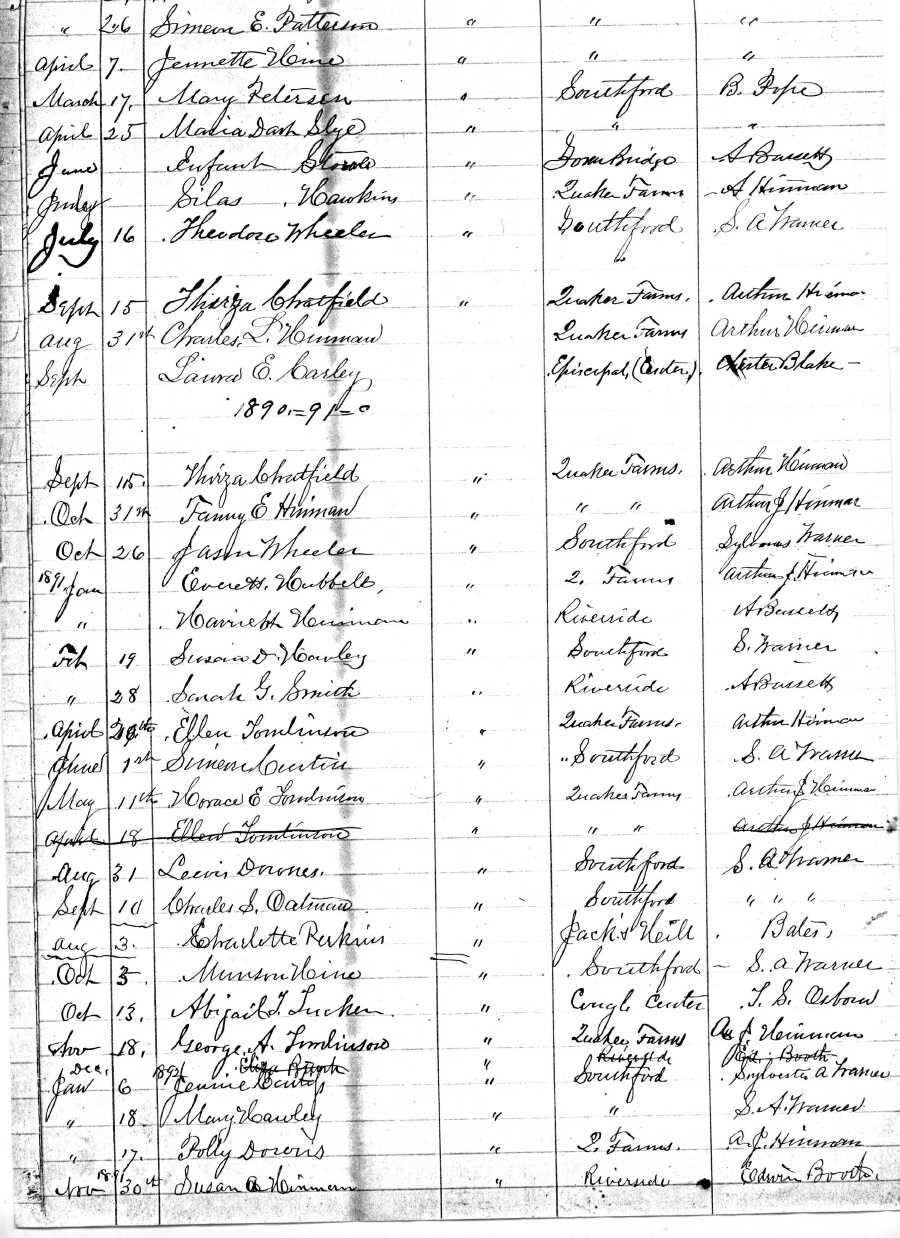 " 26 Simeon E. Patterson " " "
April 7. Jennette Hine " " "
March 17. Mary Peterson " Southford B. Pope
April 25 Maria Dart Slye " " "
June Infant Stowe " Town Bridge A Bassett
Silas Hawkins " Quaker Farms A Hinman
July 16 Theodore Wheeler " Southford S. A Warner
"
Sept 15 Thirza Chatfield " Quaker Farms. Arthur Hinman
Aug 31st Charles L. Hinman Quaker Farms Arthur Hinman
Sept Laura E. Carley Episcopal, (Center,) Chester Blake –
1890.=91=
Sept 15. Thirza Chatfield " Quaker Farms. Arthur Hinman
Oct 31st Fanny E Hinman " " " Arthur J Hinman
Oct 26 Jason Wheeler " Southford Sylvanus Warner
1891 Jan Everett Hubbell, " Q. Farms Arthur J. Hinman
" Harriett Hinman " Riverside A Bassett
Feb 19 Susan D. Hawley " Southford S. Warner
" 28 Sarah G. Smith " Riverside A Bassett
April th Ellen Tomlinson " Quaker Farms. Arthur Hinman
June 1st Simeon Curtis " Southford S. A Warner
May 11th Horace E Tomlinson " Quaker Farms Arthur J Hinman
April 18 Ellen Tomlinson " " " Arthur J Hinman
Aug 31 Lewis Downes. " Southford S. A Warner
Sept 10 Charles S. Oatman " Southford " " "
Aug 3. Charlotte Perkins " Jack's Hill . Bates,
Oct 5 Munson Hine " Southford – S. A Warner
Oct 13. Abigail T. Tucker " Congl. Center T. S. Osborn
Nov 18. George A. Tomlinson " Quaker Farms A J Hinman
Dec. Eliza Booth " Riverside Ed. Booth
Jan 6 1892 Jennie Curtis " Southford Sylvester A Warner
" 18. Mary Hawley " " S. A. Warner
" 17. Polly Downs " Q. Farms. A. J. Hinman
Nov 1891 30th Susan A Hinman " Riverside Edwin Booth.